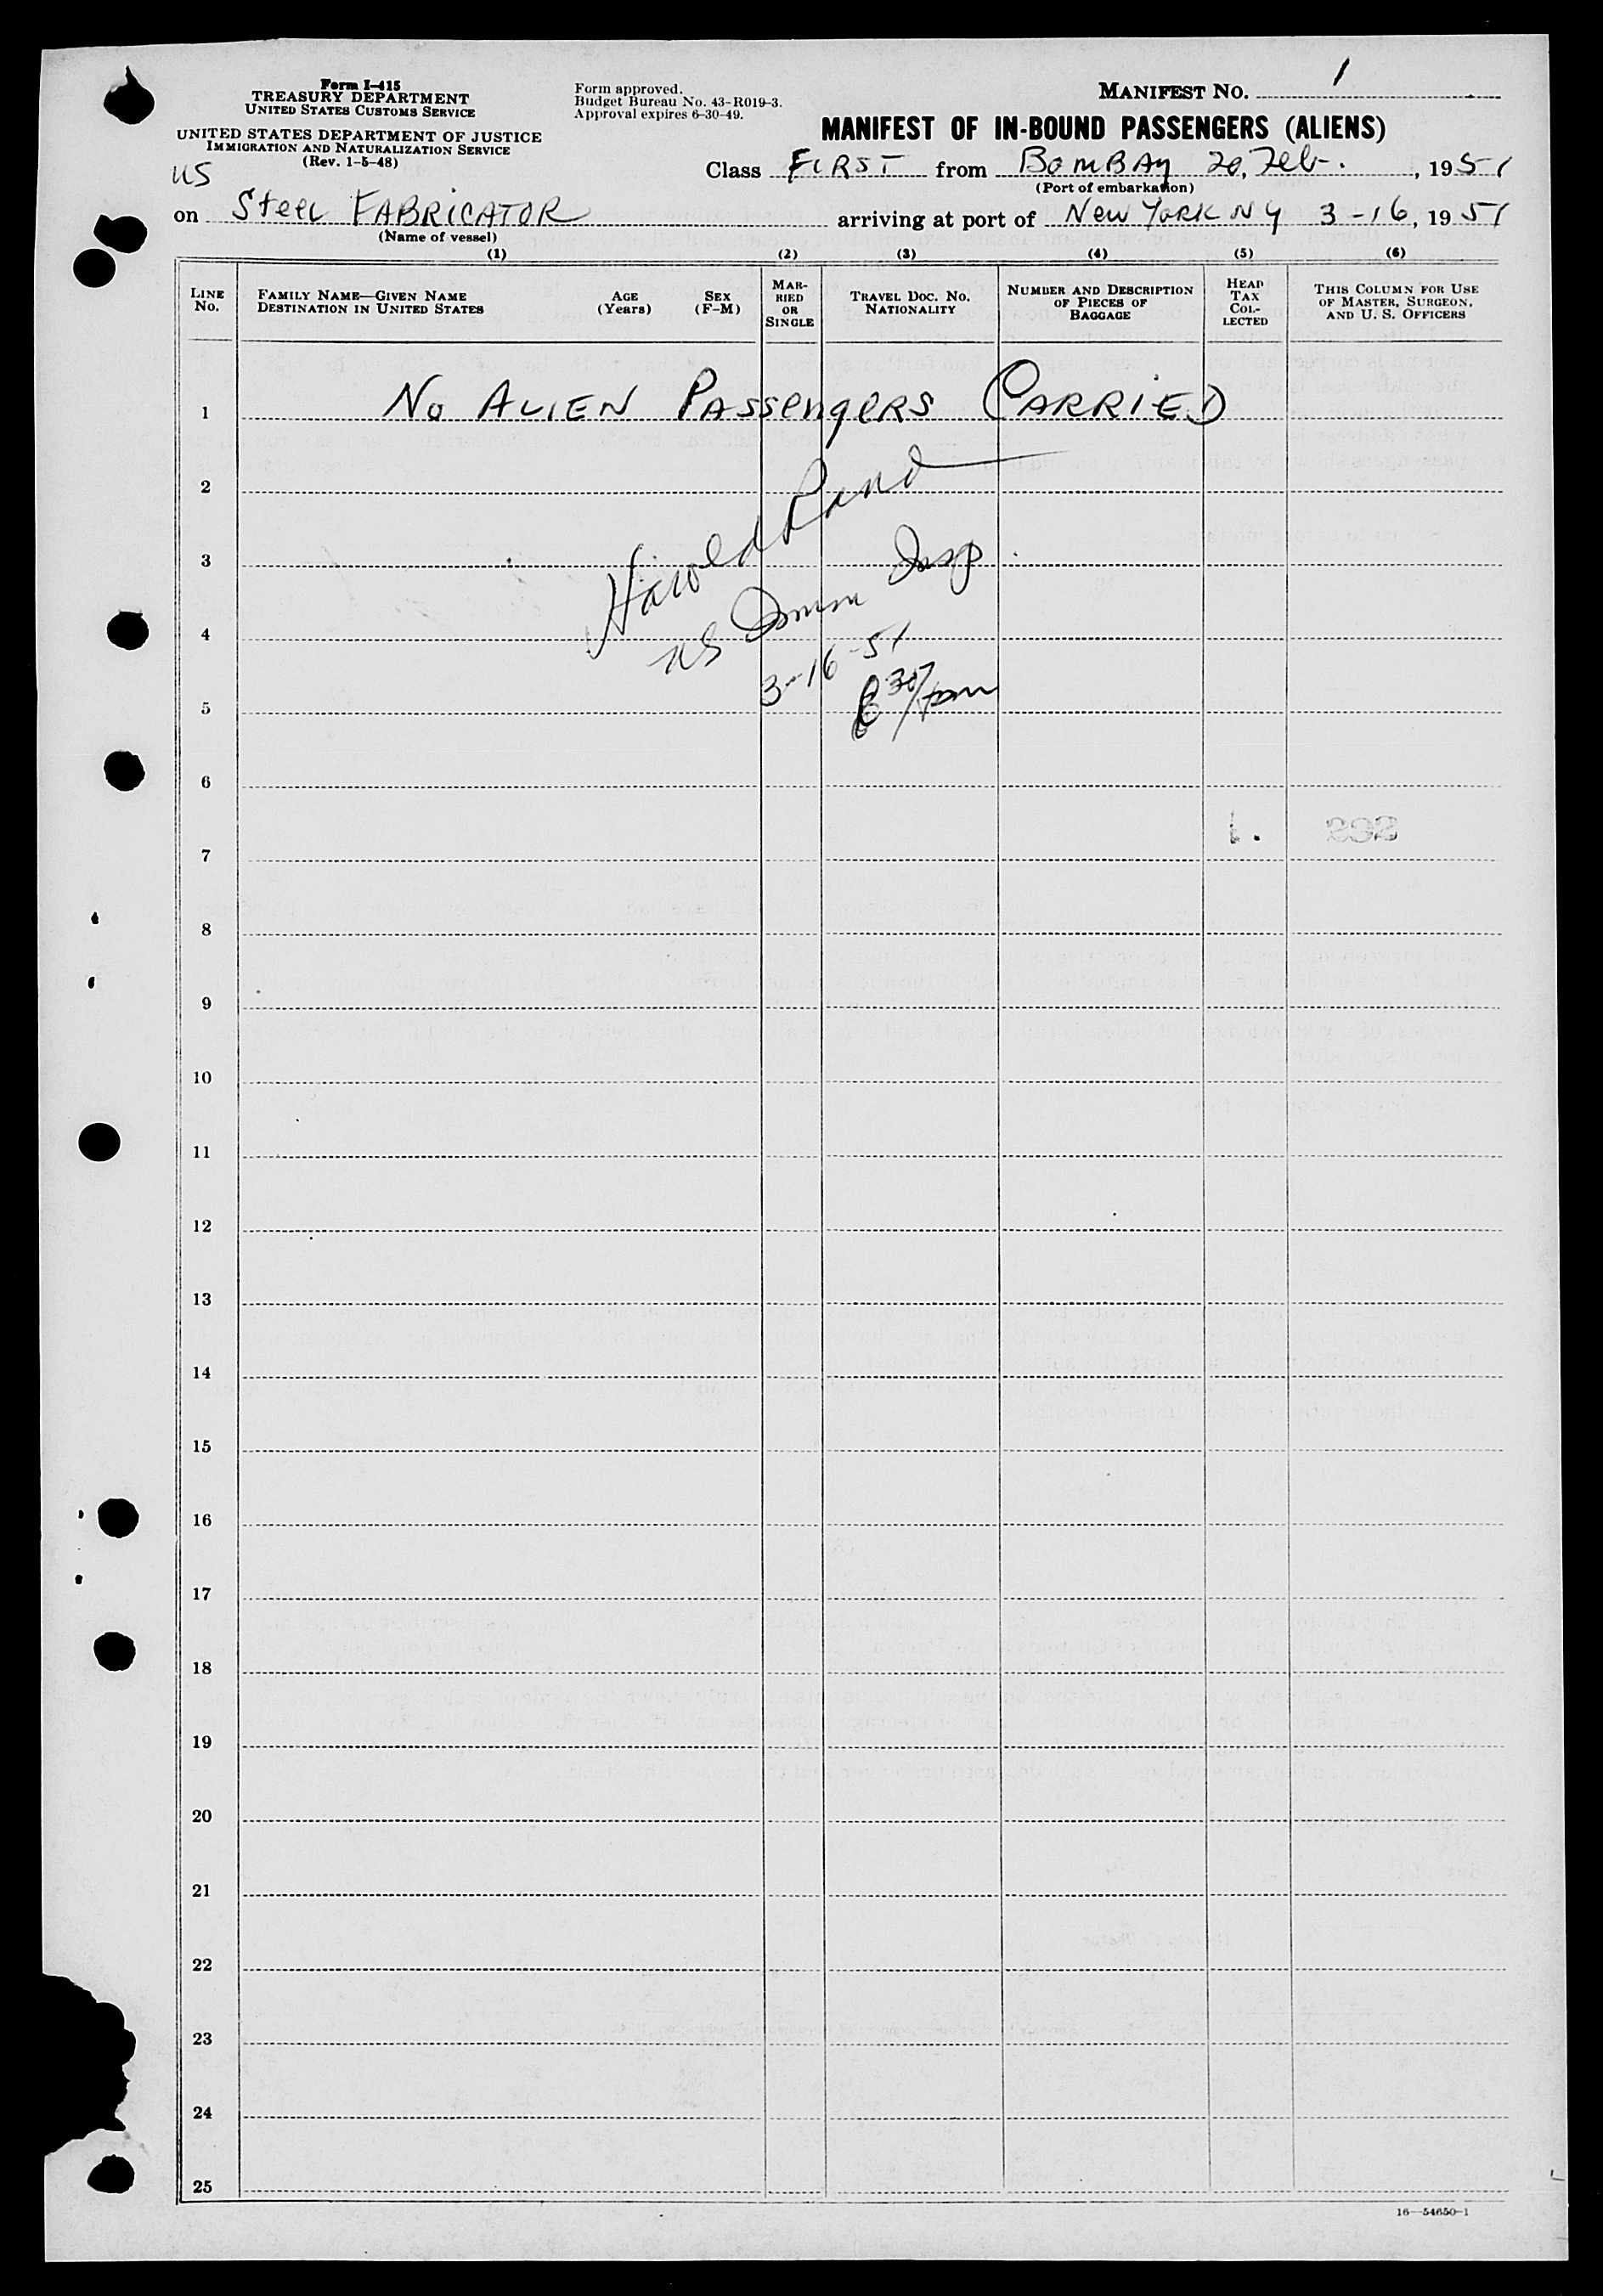 Form I-415
TREASURY DEPARTMENT
UNITED STATES CUSTOMS SERVICE
UNITED STATES DEPARTMENT OF JUSTICE
IMMIGRATION AND NATURALIZATION SERVICE
(Rev. 1-5-48)
Form approved.
Budget Bureau No. 43-R019-3.
Approval expires 6-30-49.
MANIFEST NO. 1
MANIFEST OF IN-BOUND PASSENGERS (ALIENS)
Class FIRST from BOMBAY 20, Feb., 1951
(Port of embarkation)
US
on Steel FABRICATOR arriving at port of New York NY 3-16, 1951
(Name of vessel)
(1) (2) (3) (4) (5) (6)
LINE No.
FAMILY NAME—GIVEN NAME
DESTINATION IN UNITED STATES
AGE
(Years)
SEX
(F-M)
MAR-
RIED
OR
SINGLE
TRAVEL DOC. NO.
NATIONALITY
NUMBER AND DESCRIPTION
OF PIECES OF
BAGGAGE
HEAD
TAX
COL-
LECTED
THIS COLUMN FOR USE
OF MASTER, SURGEON,
AND U. S. OFFICERS
1 No ALIEN PASSengeRS CARRIED
2
Harold Rand
3
US Immn Insp
4
3-16-51
5
630/pm
6
7
8
9
10
11
12
13
14
15
16
17
18
19
20
21
22
23
24
25
16—54650-1